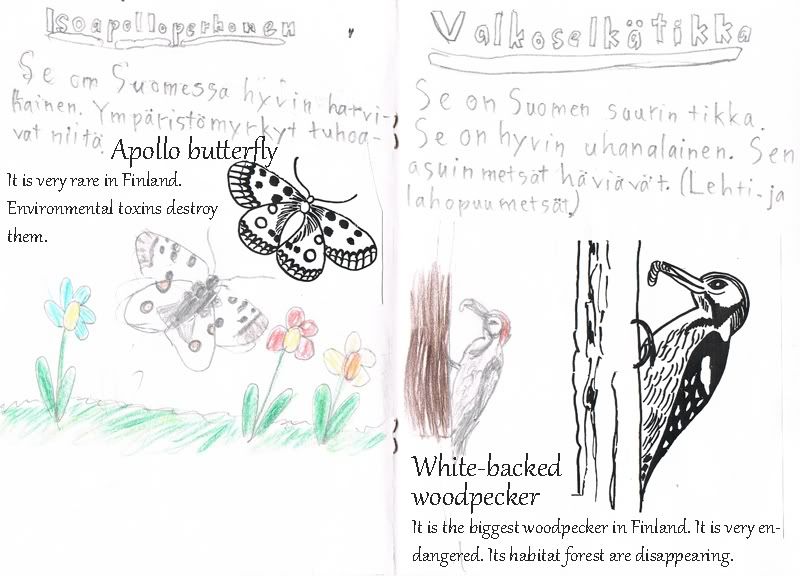 Isoapolloperhonen
Se om Suomessa hyvin harvi-
nainen. Ympäristömyrkyt tuhoa-
vat niitä.
Apollo butterfly
It is very rare in Finland.
Environmental toxins destroy
them.
Valkoselkätikka
Se on Suomen suurin tikka.
Se on hyvin uhanalainen. Sen
asuinmetsät häviävät. (Lehti- ja
lahopuumetsät)
White-backed
woodpecker
It is the biggest woodpecker in Finland. It is very en-
dangered. Its habitat forest are disappearing.